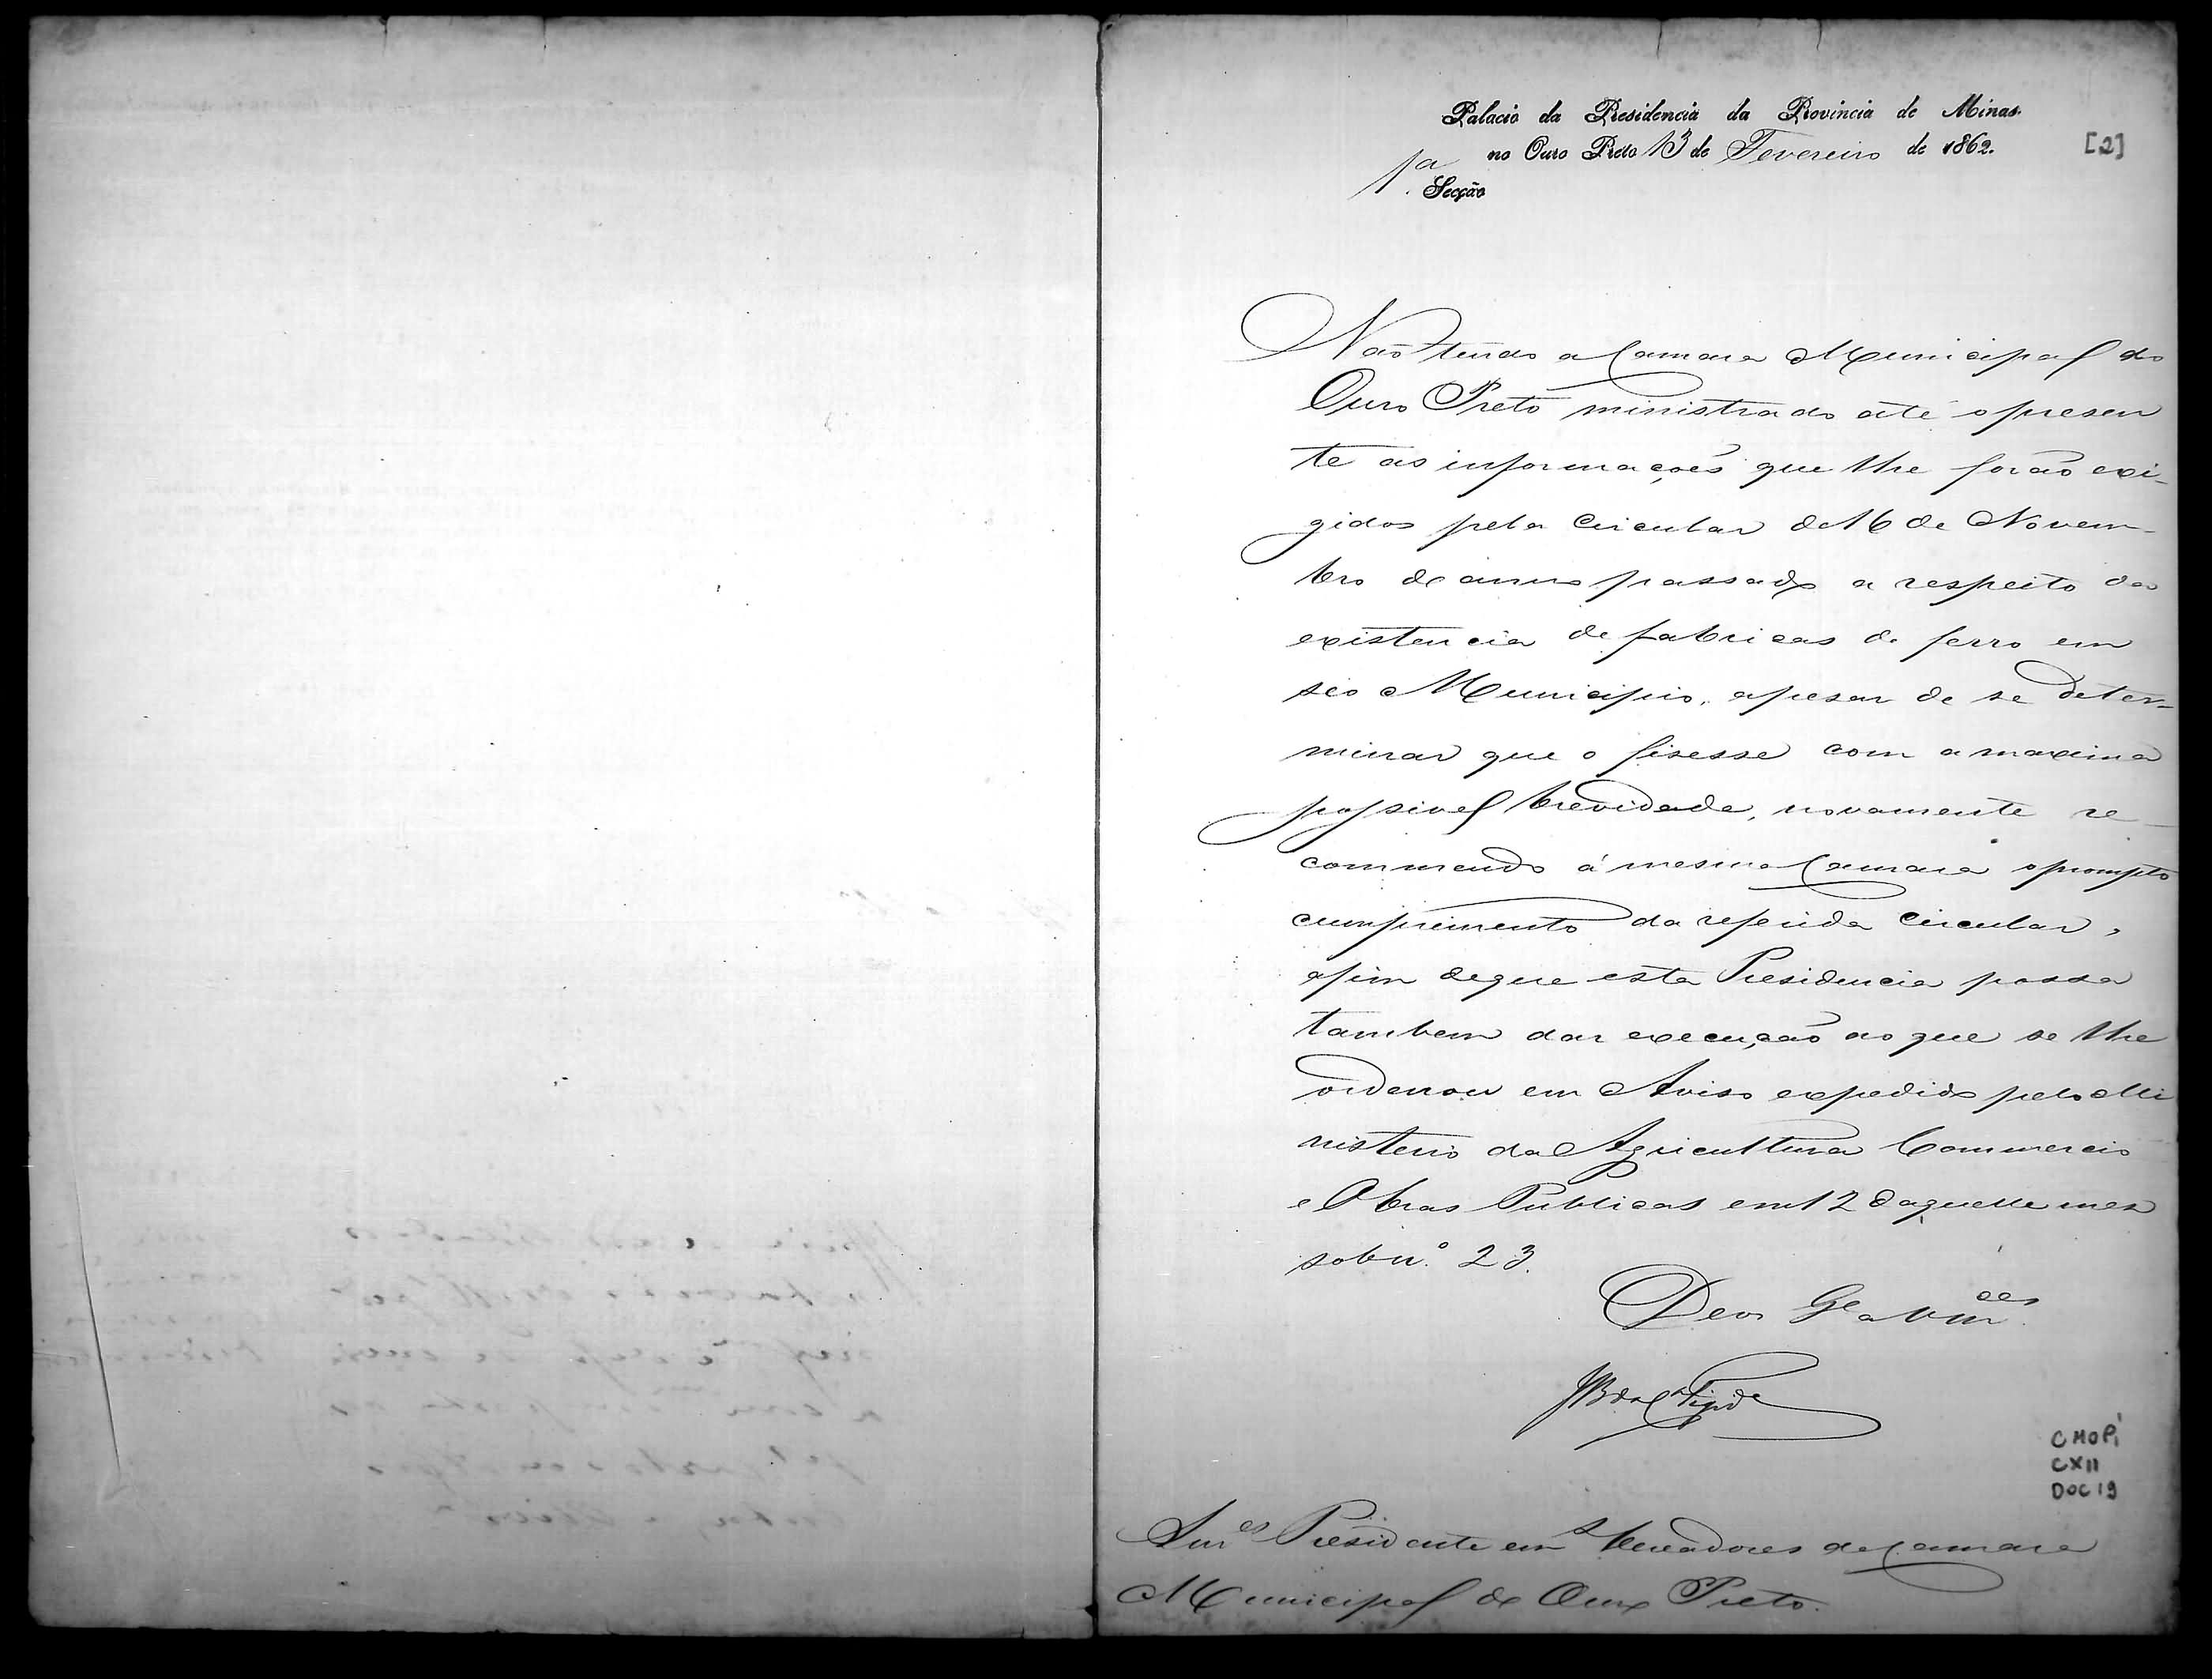 Palacio da Presidencia da Provincia de Minas.
no Ouro Preto 13 de Fevereiro de 1862.
[2]
1ª Secção
Não tendo a Camara Municipal do
Ouro Preto ministrado até o presen
te as informações que lhe forão exi-
gidas pela Circular de 16 de Novem-
bro do anno passado a respeito da
existencia de fabricas de ferro em
seo Municipio, apesar de se deter-
minar que o fisesse com a maxima
possivel brevidade, novamente re-
commendo á mesma Camara o prompto
cumprimento da referida Circular,
afim de que esta Presidencia possa
tambem dar execução ao que se lhe
ordenou em Aviso expedido pelo Mi
nisterio da Agricultura Commercio
e Obras Publicas em 12 daquelle mez
sob n.º 23.
Deos Ge a Vmces
CMOP
CXII
DOC 19
Snres Presidente e m Vereadores da Camara
Municipal do Ouro Preto.